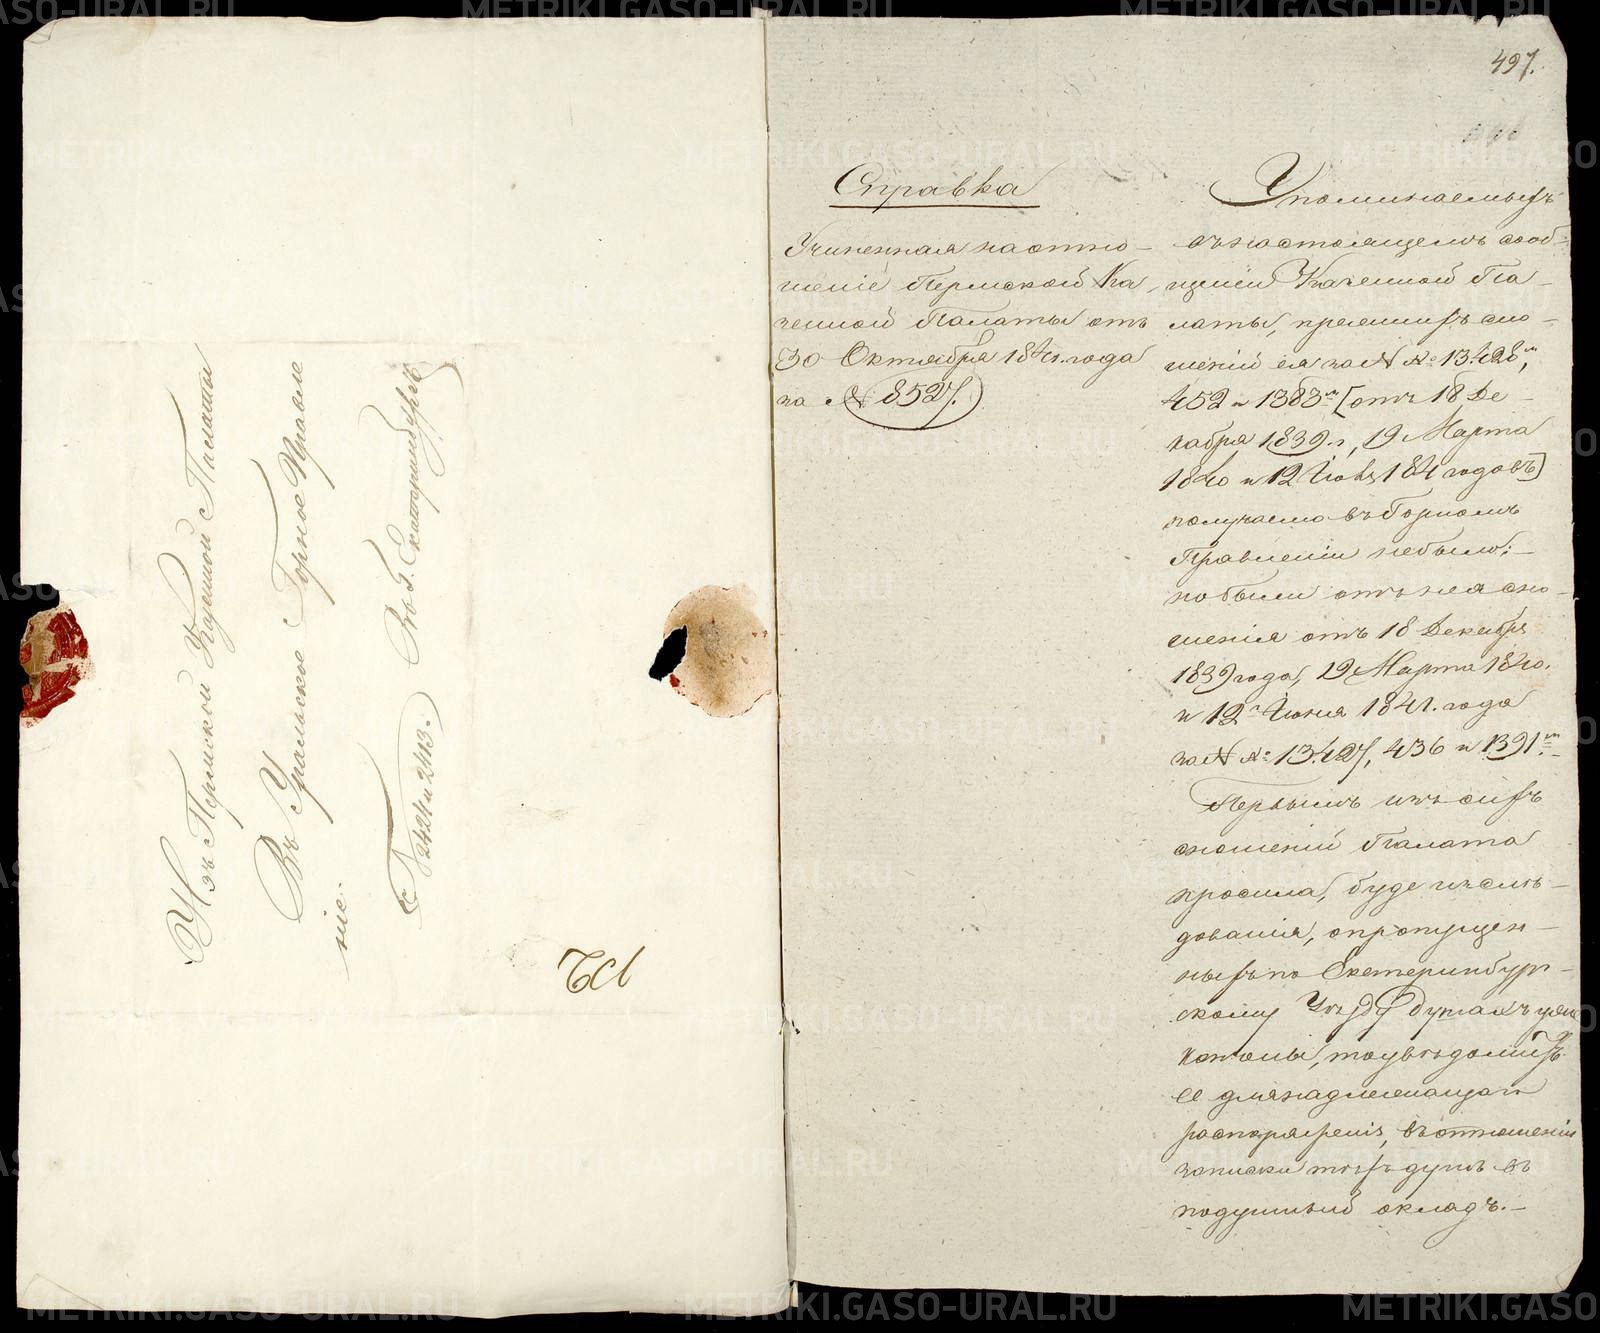 Изъ Пермской Казенной Палаты
Въ Уральское Горное Правле
ніе.
въ г. Екатеринбургѣ
2424 и 2413.
497.
Справка
Учиненная на отно-
шеніе Пермской Ка
зенной Палаты отъ
30 Октября 1841 года
за № 8527.
Упоминаемыхъ
въ настоящемъ сооб-
щеніи Казенной Па-
латы, прежнихъ сно-
шеній ея за №№ 13.428,
452 и 1383м [отъ 18 Де-
кабря 1839 г, 19 Марта
1840 и 12 Іюня 1841 годовъ]
получаемо въ Горномъ
Правленіи небыло:-
но были отъ нея сно-
шенія отъ 18 Декабря
1839 года, 19 Марта 1840.
и 12 Іюня 1841. года
за №№ 13.427, 436 и 1391м.-
Первымъ изъ сихъ
сношеній Палата
просила, буде изслѣ-
дованія, о пропущен-
ныхъ по Екатеринбург-
скому Уѣзду душахъ уже
кончены, то увѣдомить
ее для надлежащаго
распоряженія, въ отношеніи
записки тѣхъ душъ въ
подушный окладъ.-
METRIKI.GASO-URAL.RU